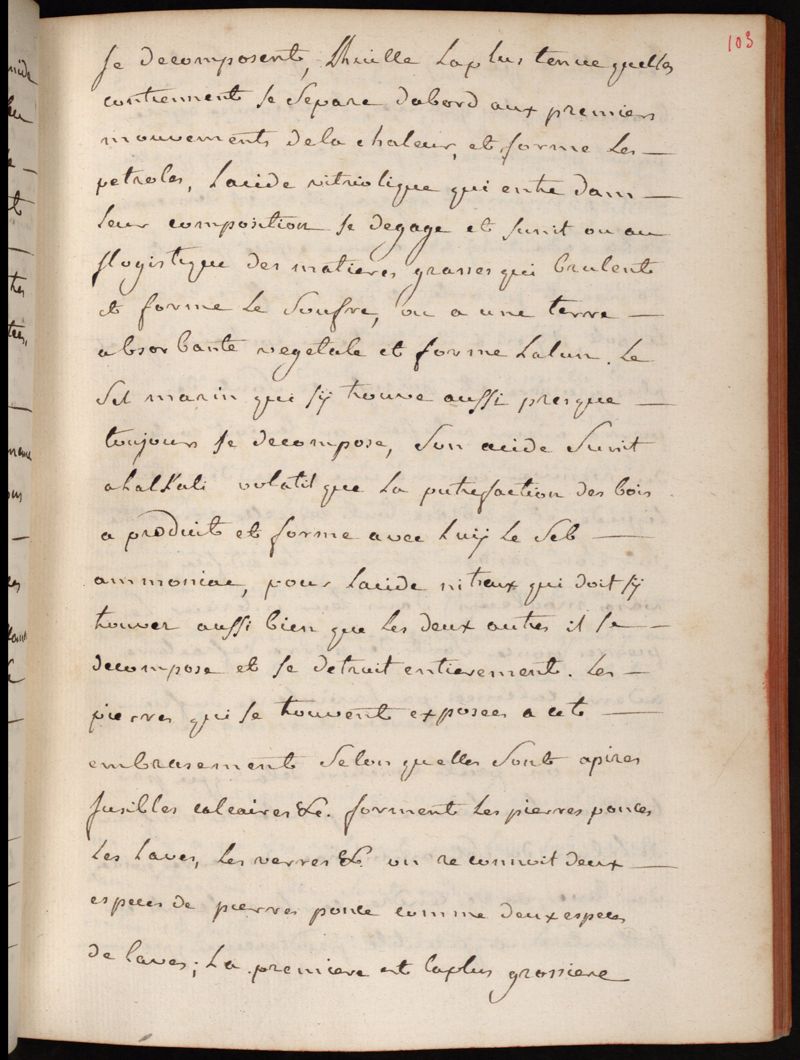 103
se decomposent, Lhuille laplus tenue quelles
contiennent se separe dabord aux premiers
mouvements dela chaleur, et forme Les —
petroles, Lacide vitriolique qui entre dans —
Leur composition se degage et sunit ou au
flogistique des matieres grasses qui brulent
et forme Le Soufre, ou a une terre —
absorbante vegetale et forme Lalun. Le
Sel marin qui sÿ trouve aussi presque —
toujours se decompose, Son acide Sunit
alalkali volatil que La putrefaction des bois
a produit et forme avec Luÿ Le Sel —
ammoniac, pour Lacide nitreux qui doit sÿ
trouver aussi bien que Les deux autres il se —
decompose et se detruit entierement. Les —
pierres qui se trouvent exposees a cet —
embrasement Selon quelles Sont apires
fusibles calcaires &c. forment Les pierres ponces
Les Laves, Les verres &c. on reconnoit deux —
especes de pierres ponce comme deux especes
de laves; La premiere est laplus grossiere